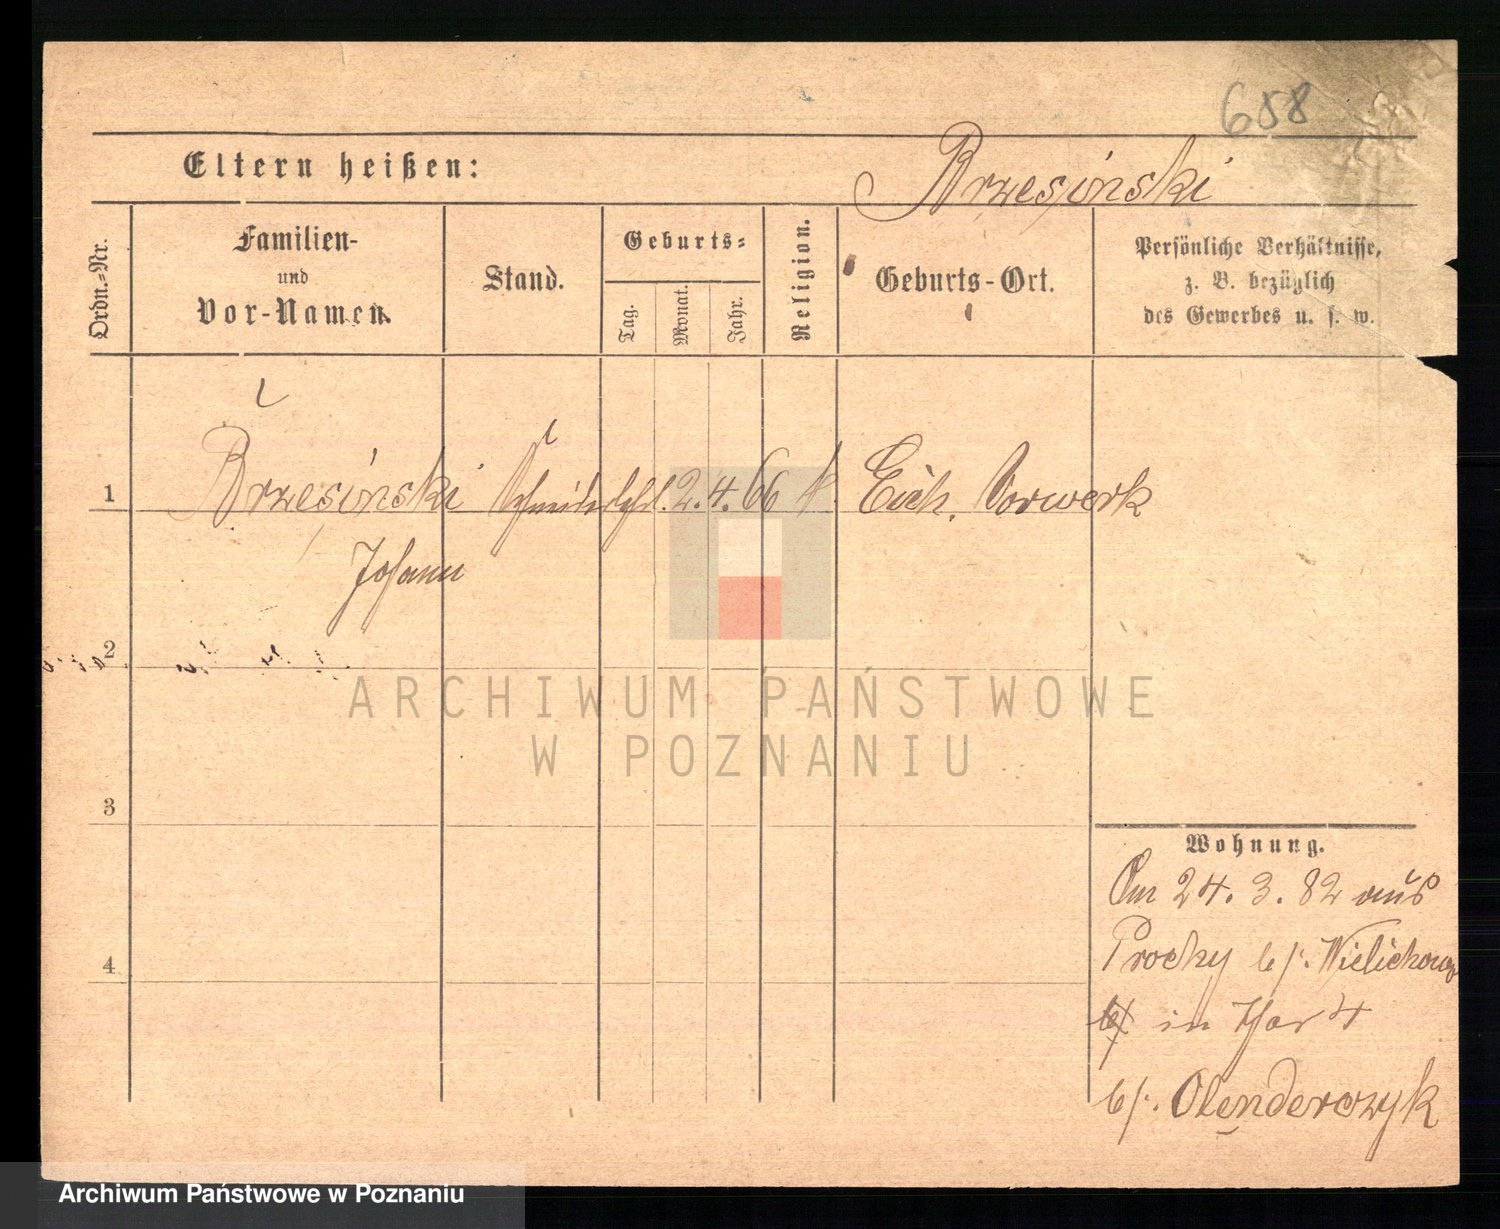 658
Eltern heißen:
Brzesinski
Ordn.-Nr.
Familien-
und
Vor-Namen.
Stand.
Geburts-
Tag.
Monat.
Jahr.
Religion.
Geburts-Ort.
Persönliche Verhältnisse,
z. B. bezüglich
des Gewerbes u. s. w.
1 Brzesinski Schneiderlehrl. 2. 4. 66 k. Eich. Vorwerk
Johann
2
3
4
Wohnung.
Am 24. 3. 82 aus
Prochy b/. Wielichowo
in Thor 4
b/. Olenderczyk
ARCHIWUM PAŃSTWOWE
W POZNANIU
Archiwum Państwowe w Poznaniu